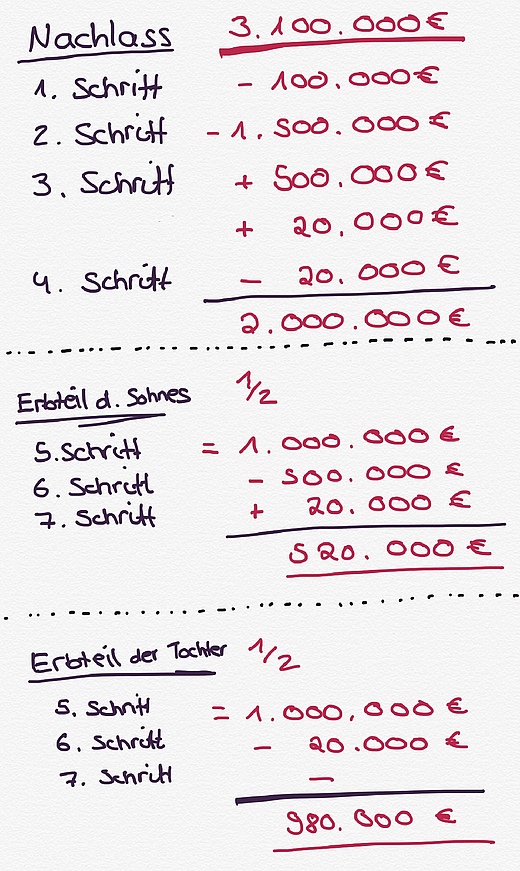 Nachlass 3.100.000€
1. Schritt - 100.000€
2. Schritt - 1.500.000€
3. Schritt + 500.000€
+ 20.000€
4. Schritt - 20.000€
2.000.000€
Erbteil d. Sohnes 1/2
5. Schritt = 1.000.000€
6. Schritt - 500.000€
7. Schritt + 20.000€
520.000€
Erbteil der Tochter 1/2
5. Schritt = 1.000.000€
6. Schritt - 20.000€
7. Schritt -
980.000€